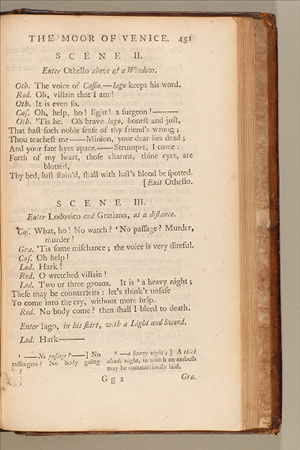 THE MOOR OF VENICE. 451
SCENE II.
Enter Othello above at a Window.
Oth. The voice of Cassio.—Iago keeps his word.
Rod. Oh, villain that I am!
Oth. It is even so.
Cas. Oh, help, ho! light! a surgeon!——
Oth. 'Tis he. Oh brave Iago, honest and just,
That hast such noble sense of thy friend's wrong;
Thou teachest me——Minion, your dear lies dead;
And your fate hyes apace.—— Strumpet, I come:
Forth of my heart, those charms, thine eyes, are
blotted,
Thy bed, lust stain'd, shall with lust's blood be spotted.
[Exit Othello.
SCENE III.
Enter Lodovico and Gratiano, at a distance.
Cas. What, ho! No watch? ¹ No passage? Murder,
murder!
Gra. 'Tis some mischance; the voice is very direful.
Cas. Oh help!
Lod. Hark!
Rod. O wretched villain!
Lod. Two or three groans. It is ² a heavy night;
These may be counterfeits: let's think't unsafe
To come into the cry, without more help.
Rod. No body come? then shall I bleed to death.
Enter Iago, in his shirt, with a Light and Sword.
Lod. Hark——
¹ —No passage?—] No
passengers? No body going
² —a heavy night;] A thick
cloudy night, in which an ambush
may be commodiously laid.
Gg 2 Gra.